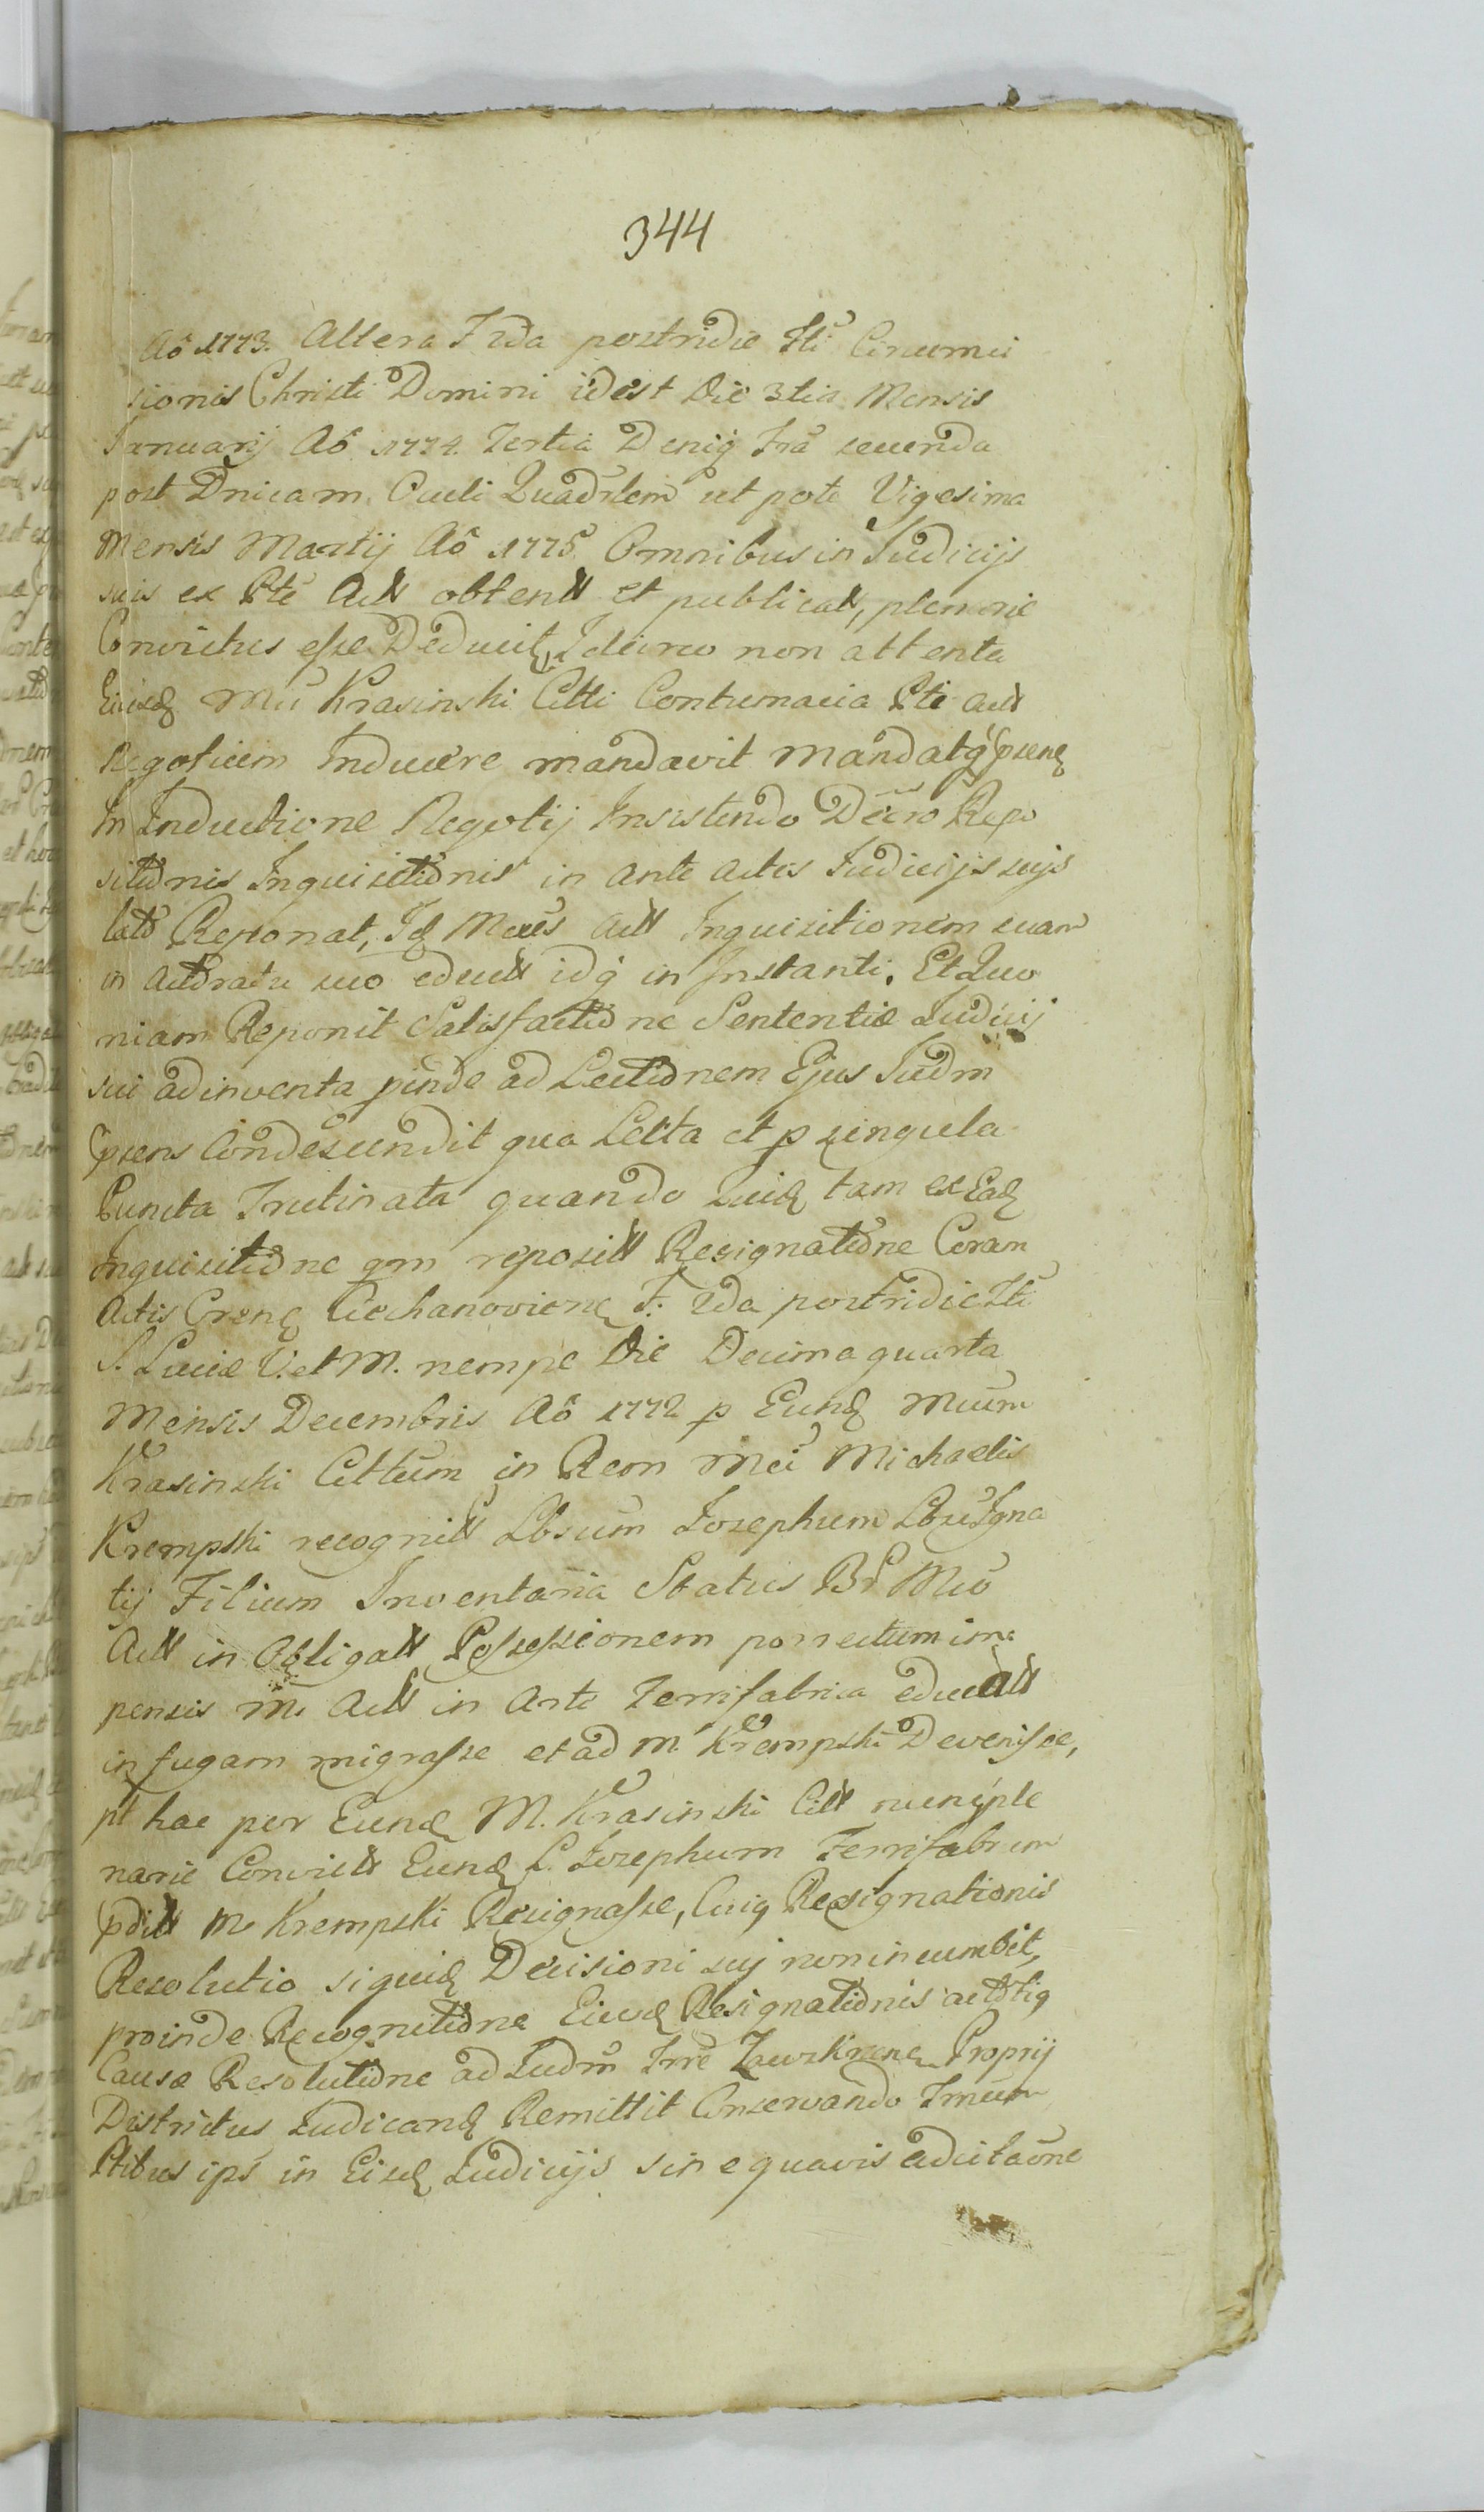 344
Aô 1773. Altera F 2da postridie Fti Circumci
sionis Christi Domini idest Die 3tia Mensis
Januarij Aô 1774. Tertia Deniq Fra secunda
post Dnicam Oculi Quadrlem ut pote Vigesima
Mensis Martij Aô 1775 Omnibus in Judicijs
suis ex Pte Act obtent et publicat, plenarie
Convictus esse Deducit, Idcirco non attenta
Eiusd Mci Krasinski Citti Contumacia Pti Act
Negotium Inducere mandavit Mandatq psenq
In Inductione Negotij Insistendo Decro Repo
sitionis Inquisitionis in Ante Actis Judicijs suis
lato Reponat, Id Mcus Act Inquisitionem suam
in Actoratu suo educt idq in Instanti. Et Quo
niam Reponit Satisfactione Sententiæ Judicij
sui adinventa pinde ad Lectionem Ejus Judm
psens Condescendit qua Lecta et p singula
Puncta Trutinata quando Quid tam ex Ead
Inquisitione qm reposit Resignatione Coram
Actis Crens Ciechanoviens F. 2da postridie Fti
S. Luciæ V. et M. nempe Die Decima quarta
Mensis Decembris Aô 1772 p Eund Mcum
Krasinski Cittum in Rem Mci Michaelis
Krempski recognit Lbsum Josephum Lbsi Igna
tij Filium Inventaria Status Br Mco
Act in Obligat Possessionem porrectum im
pensis M. Act in Arte Ferrifabrica educat
in fugam migrasse et ad M. Krempski Devenisse,
pt hac per Eund M. Krasinski Citt nuncple
narie Convict Eund L. Josephum Ferrifabrum
pdict M Krempski Resignasse, Cuiq Resignationis
Resolutio siquid Decisioni suj non incumbit,
proinde Recognitione Eiusd Resignationis actotiq
Causæ Resolutione ad Judm Trre Zawskrens Proprij
Districtus Judicand Remittit Conservando Tmnum
Ptibus ips in Eisd Judicijs sine quavis adcitaone